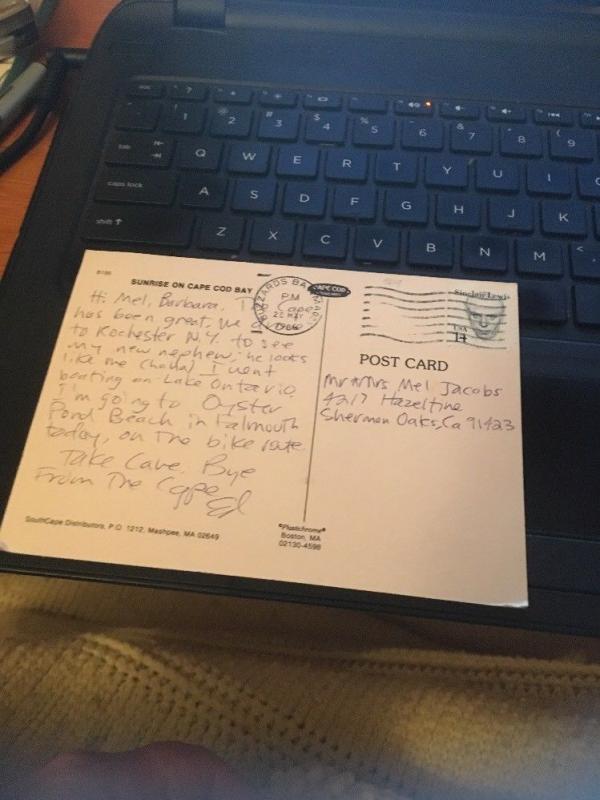 esc ?
! 1 2 # 3 $ 4 % 5 6 & 7 8 ( 9
tab Q W E R T Y U I
caps lock A S D F G H J K
shift Z X C V B N M <
8186
SUNRISE ON CAPE COD BAY
Hi Mel, Barbara, The Cape
has been great, we drove
to Rochester N.Y. to see
my new nephew, he looks
like me (haha) I went
boating on Lake Ontario,
I'm going to Oyster
Pond Beach in Falmouth
today, on the bike
Take Care, Bye
From The Cape Ed
SouthCape Distributors, P.O. 1212, Mashpee, MA 02649
BUZZARDS BAY
PM
22 MAY
CAPE COD
Sinclair Lewis
USA
14
POST CARD
Mr & Mrs Mel Jacobs
4217 Hazeltine
Sherman Oaks, Ca 91423
"Plastichrome"
Boston, MA
02130-4598